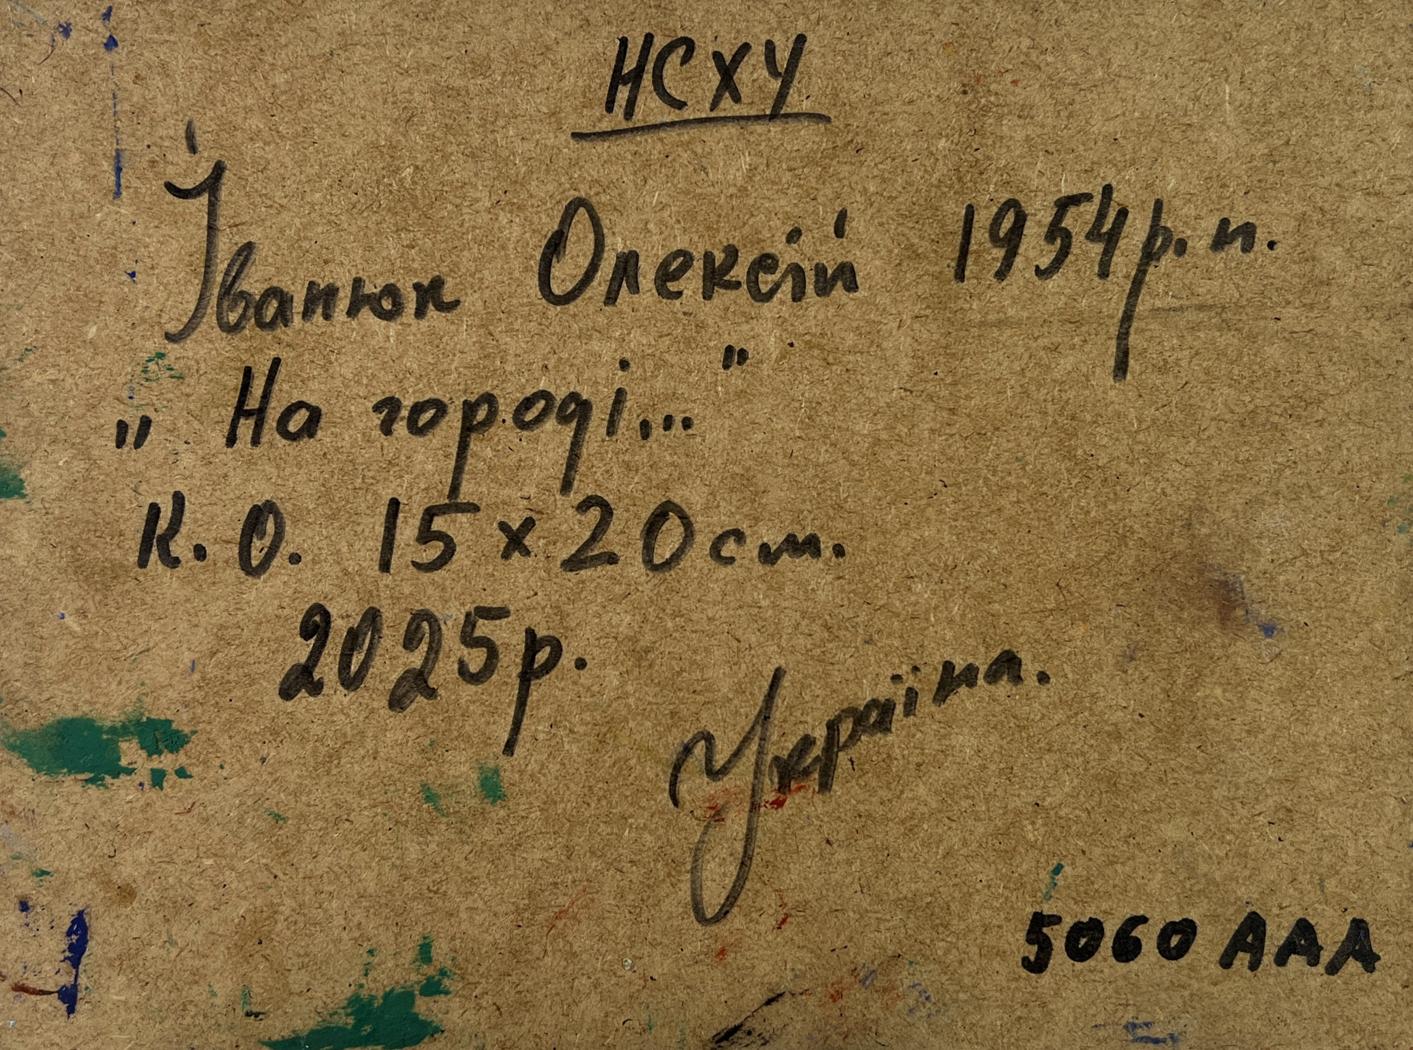 НСХУ
Іванюк Олексій 1954 р. н.
„ На городі... "
К. О. 15 x 20 см.
2025 р.
Україна.
5060 ААА